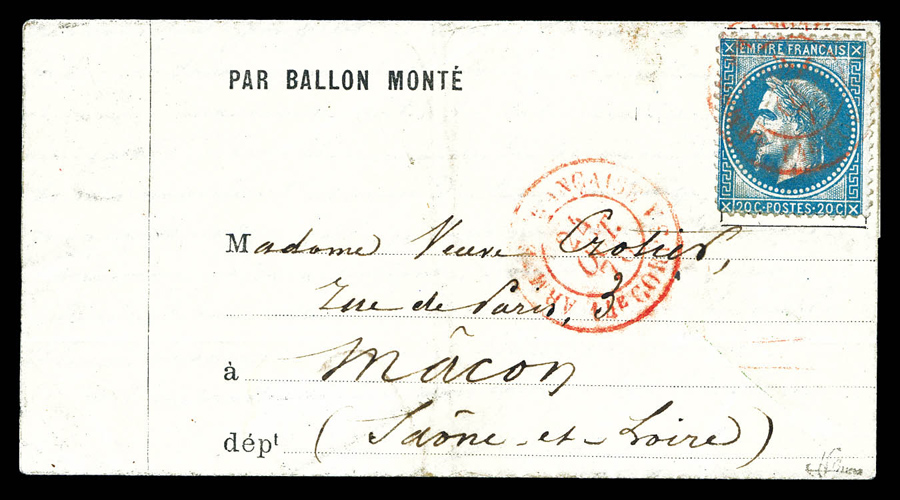 PAR BALLON MONTÉ
EMPIRE FRANÇAIS
20C-POSTES-20C
Madame Veuve Crotier,
Rue de Paris, 3
à Mâcon
dépt (Saône-et-Loire)